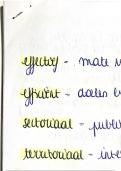 effectief - mate w
efficiënt - doelen b
sectoriaal - public
territoriaal - inte